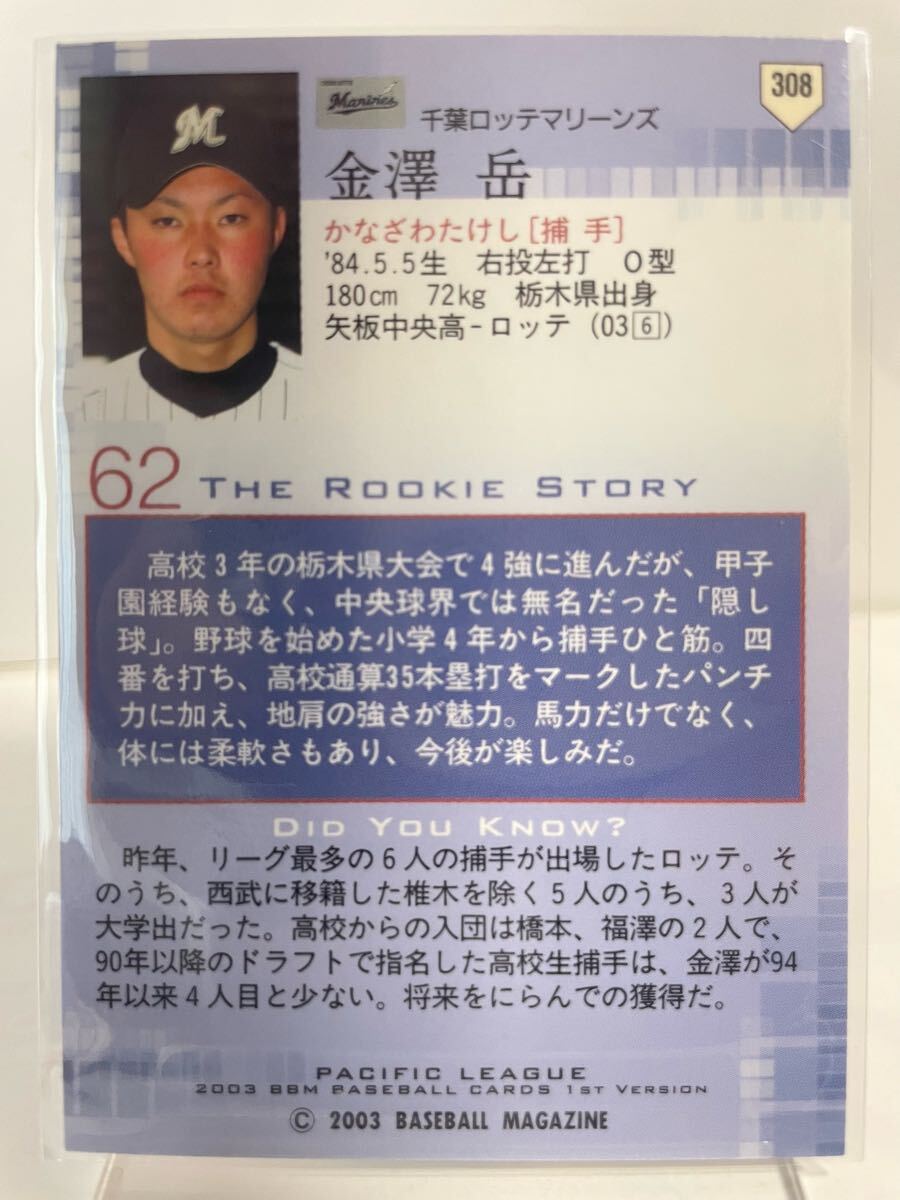 308
M
Marines
千葉ロッテマリーンズ
金澤 岳
かなざわたけし[捕 手]
'84.5.5生 右投左打 O型
180cm 72kg 栃木県出身
矢板中央高-ロッテ (03⑥)
62 THE ROOKIE STORY
高校3年の栃木県大会で4強に進んだが、甲子
園経験もなく、中央球界では無名だった「隠し
球」。野球を始めた小学4年から捕手ひと筋。四
番を打ち、高校通算35本塁打をマークしたパンチ
力に加え、地肩の強さが魅力。馬力だけでなく、
体には柔軟さもあり、今後が楽しみだ。
DID YOU KNOW?
昨年、リーグ最多の6人の捕手が出場したロッテ。そ
のうち、西武に移籍した椎木を除く5人のうち、3人が
大学出だった。高校からの入団は橋本、福澤の2人で、
90年以降のドラフトで指名した高校生捕手は、金澤が94
年以来4人目と少ない。将来をにらんでの獲得だ。
PACIFIC LEAGUE
2003 BBM BASEBALL CARDS 1ST VERSION
© 2003 BASEBALL MAGAZINE